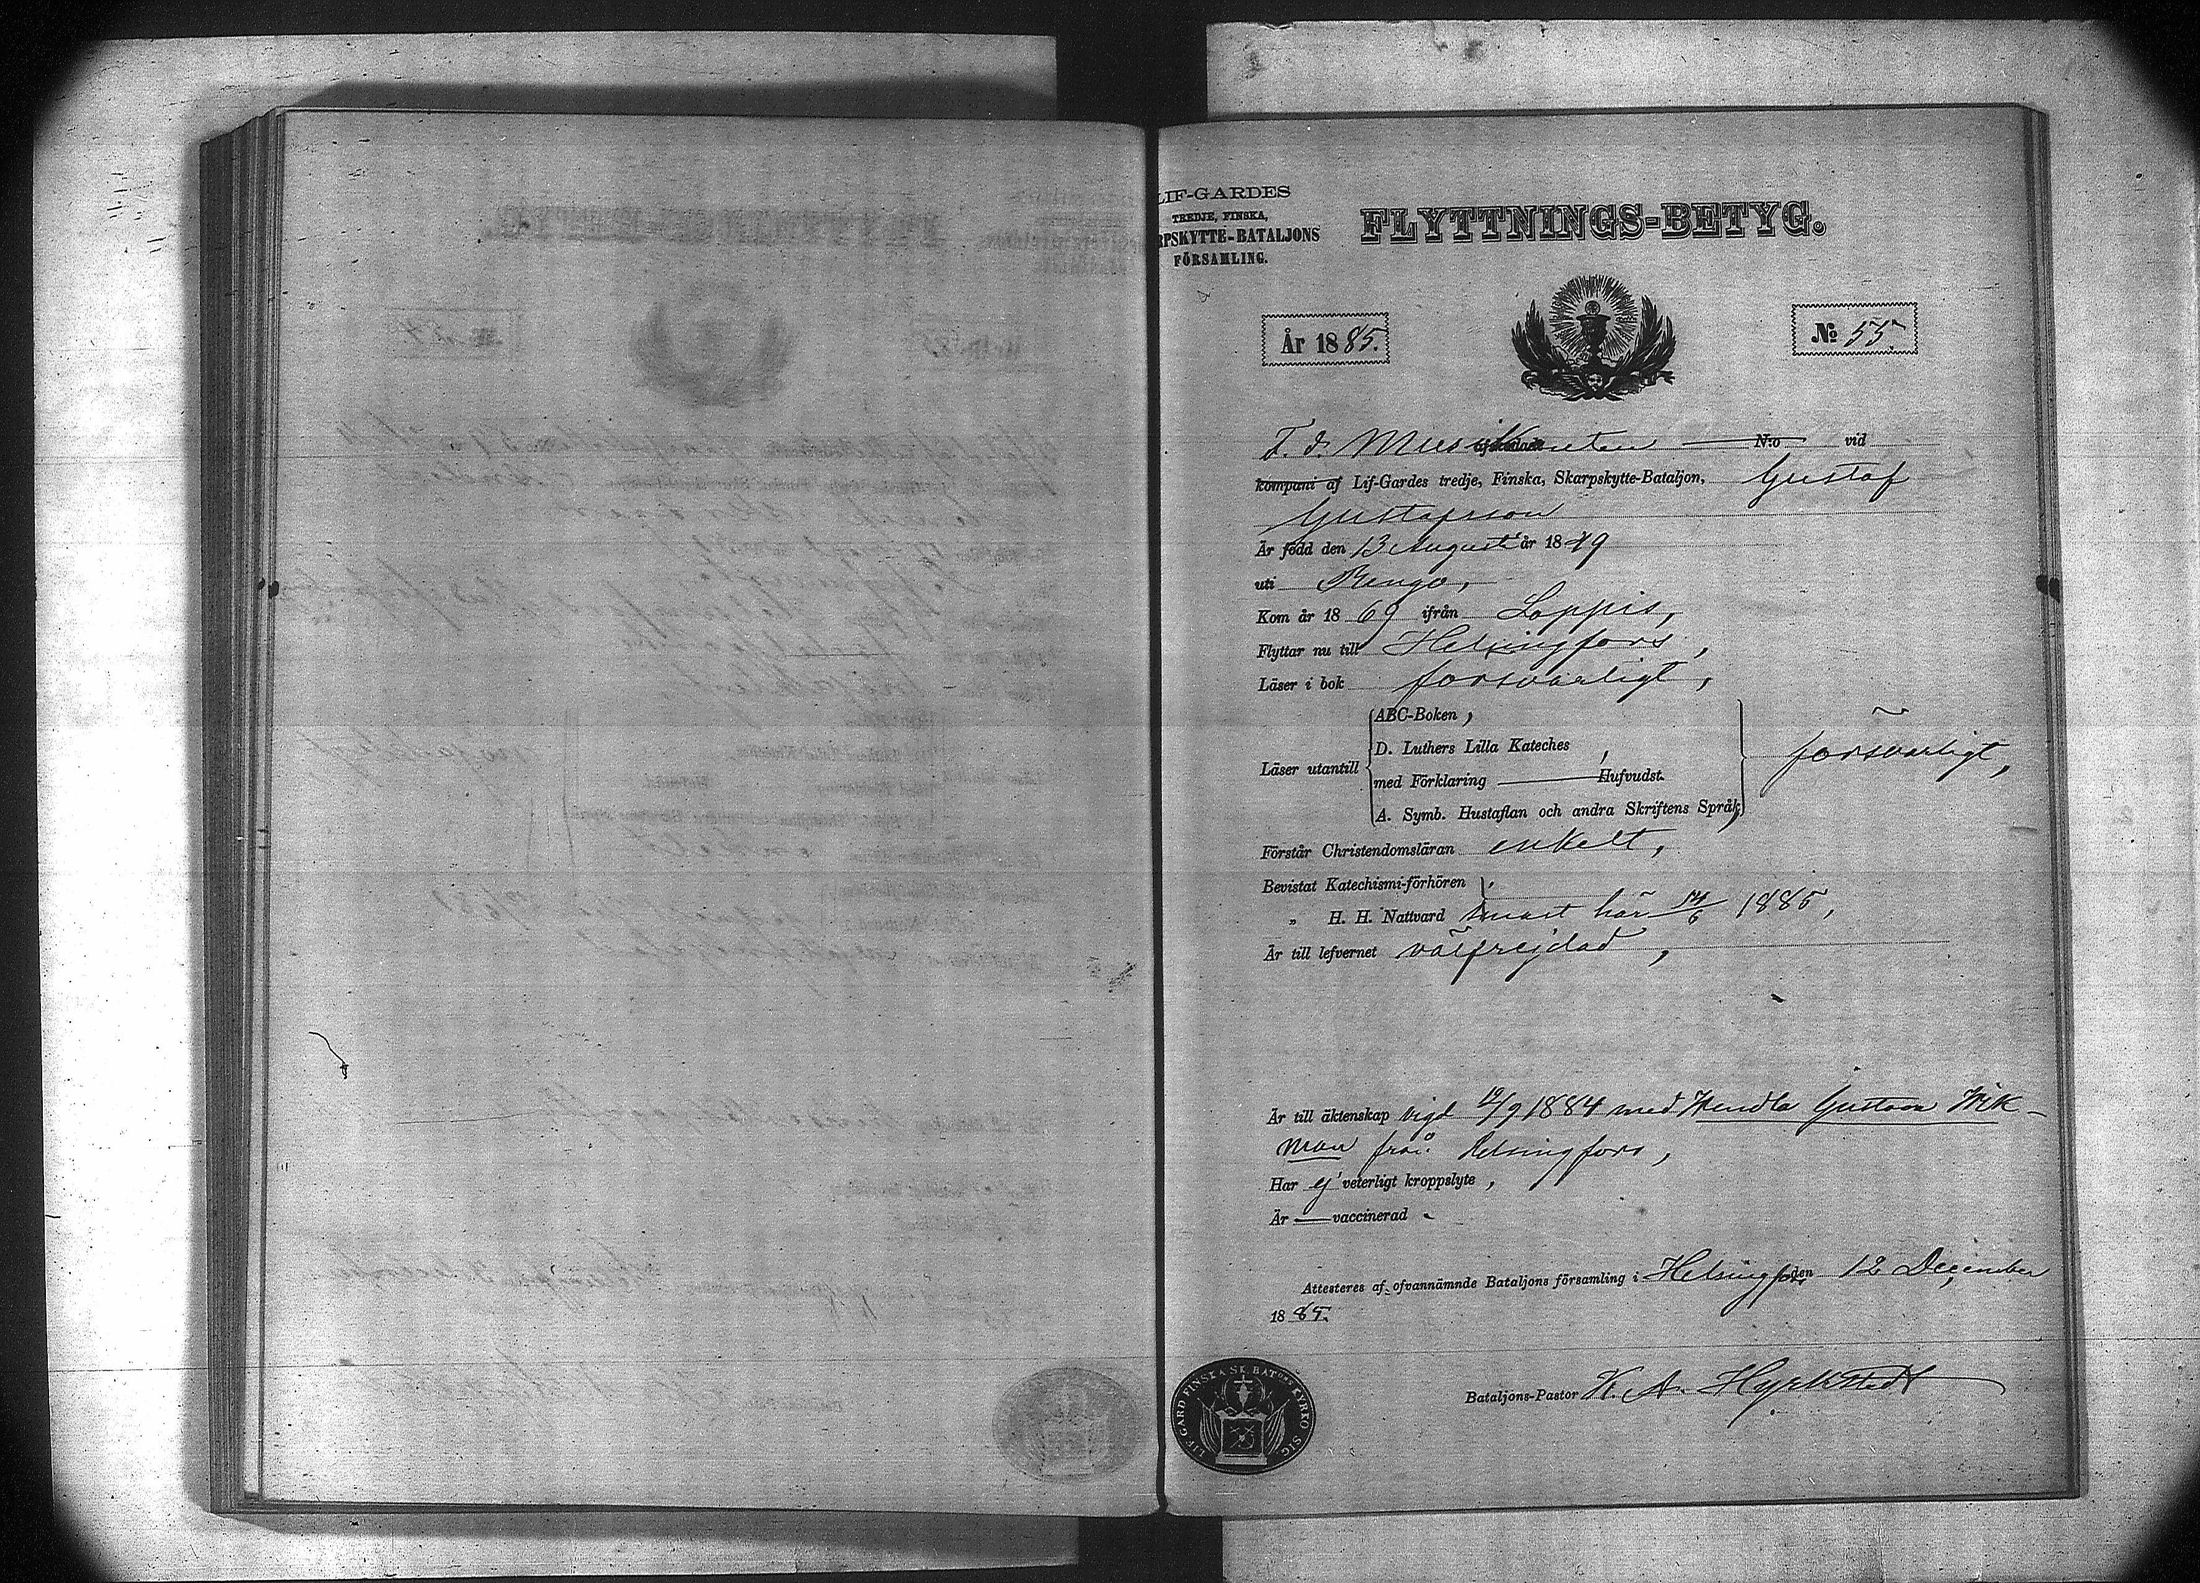 LIF-GARDES
TREDJE, FINSKA,
RPSKYTTE-BATALJONS
FÖRSAMLING.
FLYTTNINGS-BETYG.
År 1885.
No 55.
F. d. Musikanten N:o vid
kompani af Lif-Gardes tredje, Finska, Skarpskytte-Bataljon, Gustaf
Gustafsson
Är född den 13 Augusti år 1849
uti Rengo,
Kom år 1869 ifrån Loppis,
Flyttar nu till Helsingfors,
Läser i bok försvarligt,
Läser utantill
ABC-Boken,
D. Luthers Lilla Kateches,
med Förklaring Hufvudst.
A. Symb. Hustaflan och andra Skriftens Språk,
försvarligt,
Förstår Christendomsläran enkelt,
Bevistat Katechismi-förhören,
„ H. H. Nattvard senast här 14/6 1885,
Är till lefvernet välfrejdad,
Är till äktenskap vigd 12/9 1884 med Hendla Gustava Wik-
man från Helsingfors,
Har ej veterligt kroppslyte,
Är vaccinerad
Attesteres af ofvannämnde Bataljons församling i Helsingfors den 12 December
1885.
Bataljons-Pastor K. A. Hyrkstedt
LIF-GARD FINSKA SK. BAT:NS KYRKO SIG.